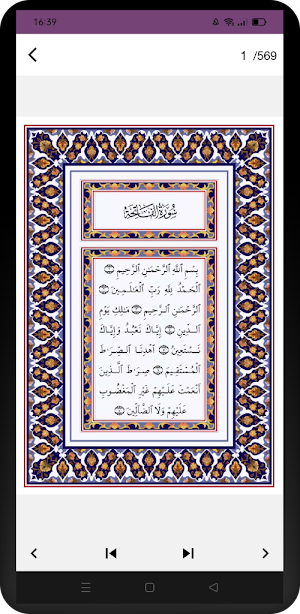 16:39
1 /569
سُورَةُ الْفَاتِحَةِ
بِسْمِ ٱللَّهِ ٱلرَّحْمَـٰنِ ٱلرَّحِيمِ ۝
ٱلْحَمْدُ لِلَّهِ رَبِّ ٱلْعَـٰلَمِينَ ۝
ٱلرَّحْمَـٰنِ ٱلرَّحِيمِ ۝ مَـٰلِكِ يَوْمِ
ٱلدِّينِ ۝ إِيَّاكَ نَعْبُدُ وَإِيَّاكَ
نَسْتَعِينُ ۝ ٱهْدِنَا ٱلصِّرَٰطَ
ٱلْمُسْتَقِيمَ ۝ صِرَٰطَ ٱلَّذِينَ
أَنْعَمْتَ عَلَيْهِمْ غَيْرِ ٱلْمَغْضُوبِ
عَلَيْهِمْ وَلَا ٱلضَّآلِّينَ ۝